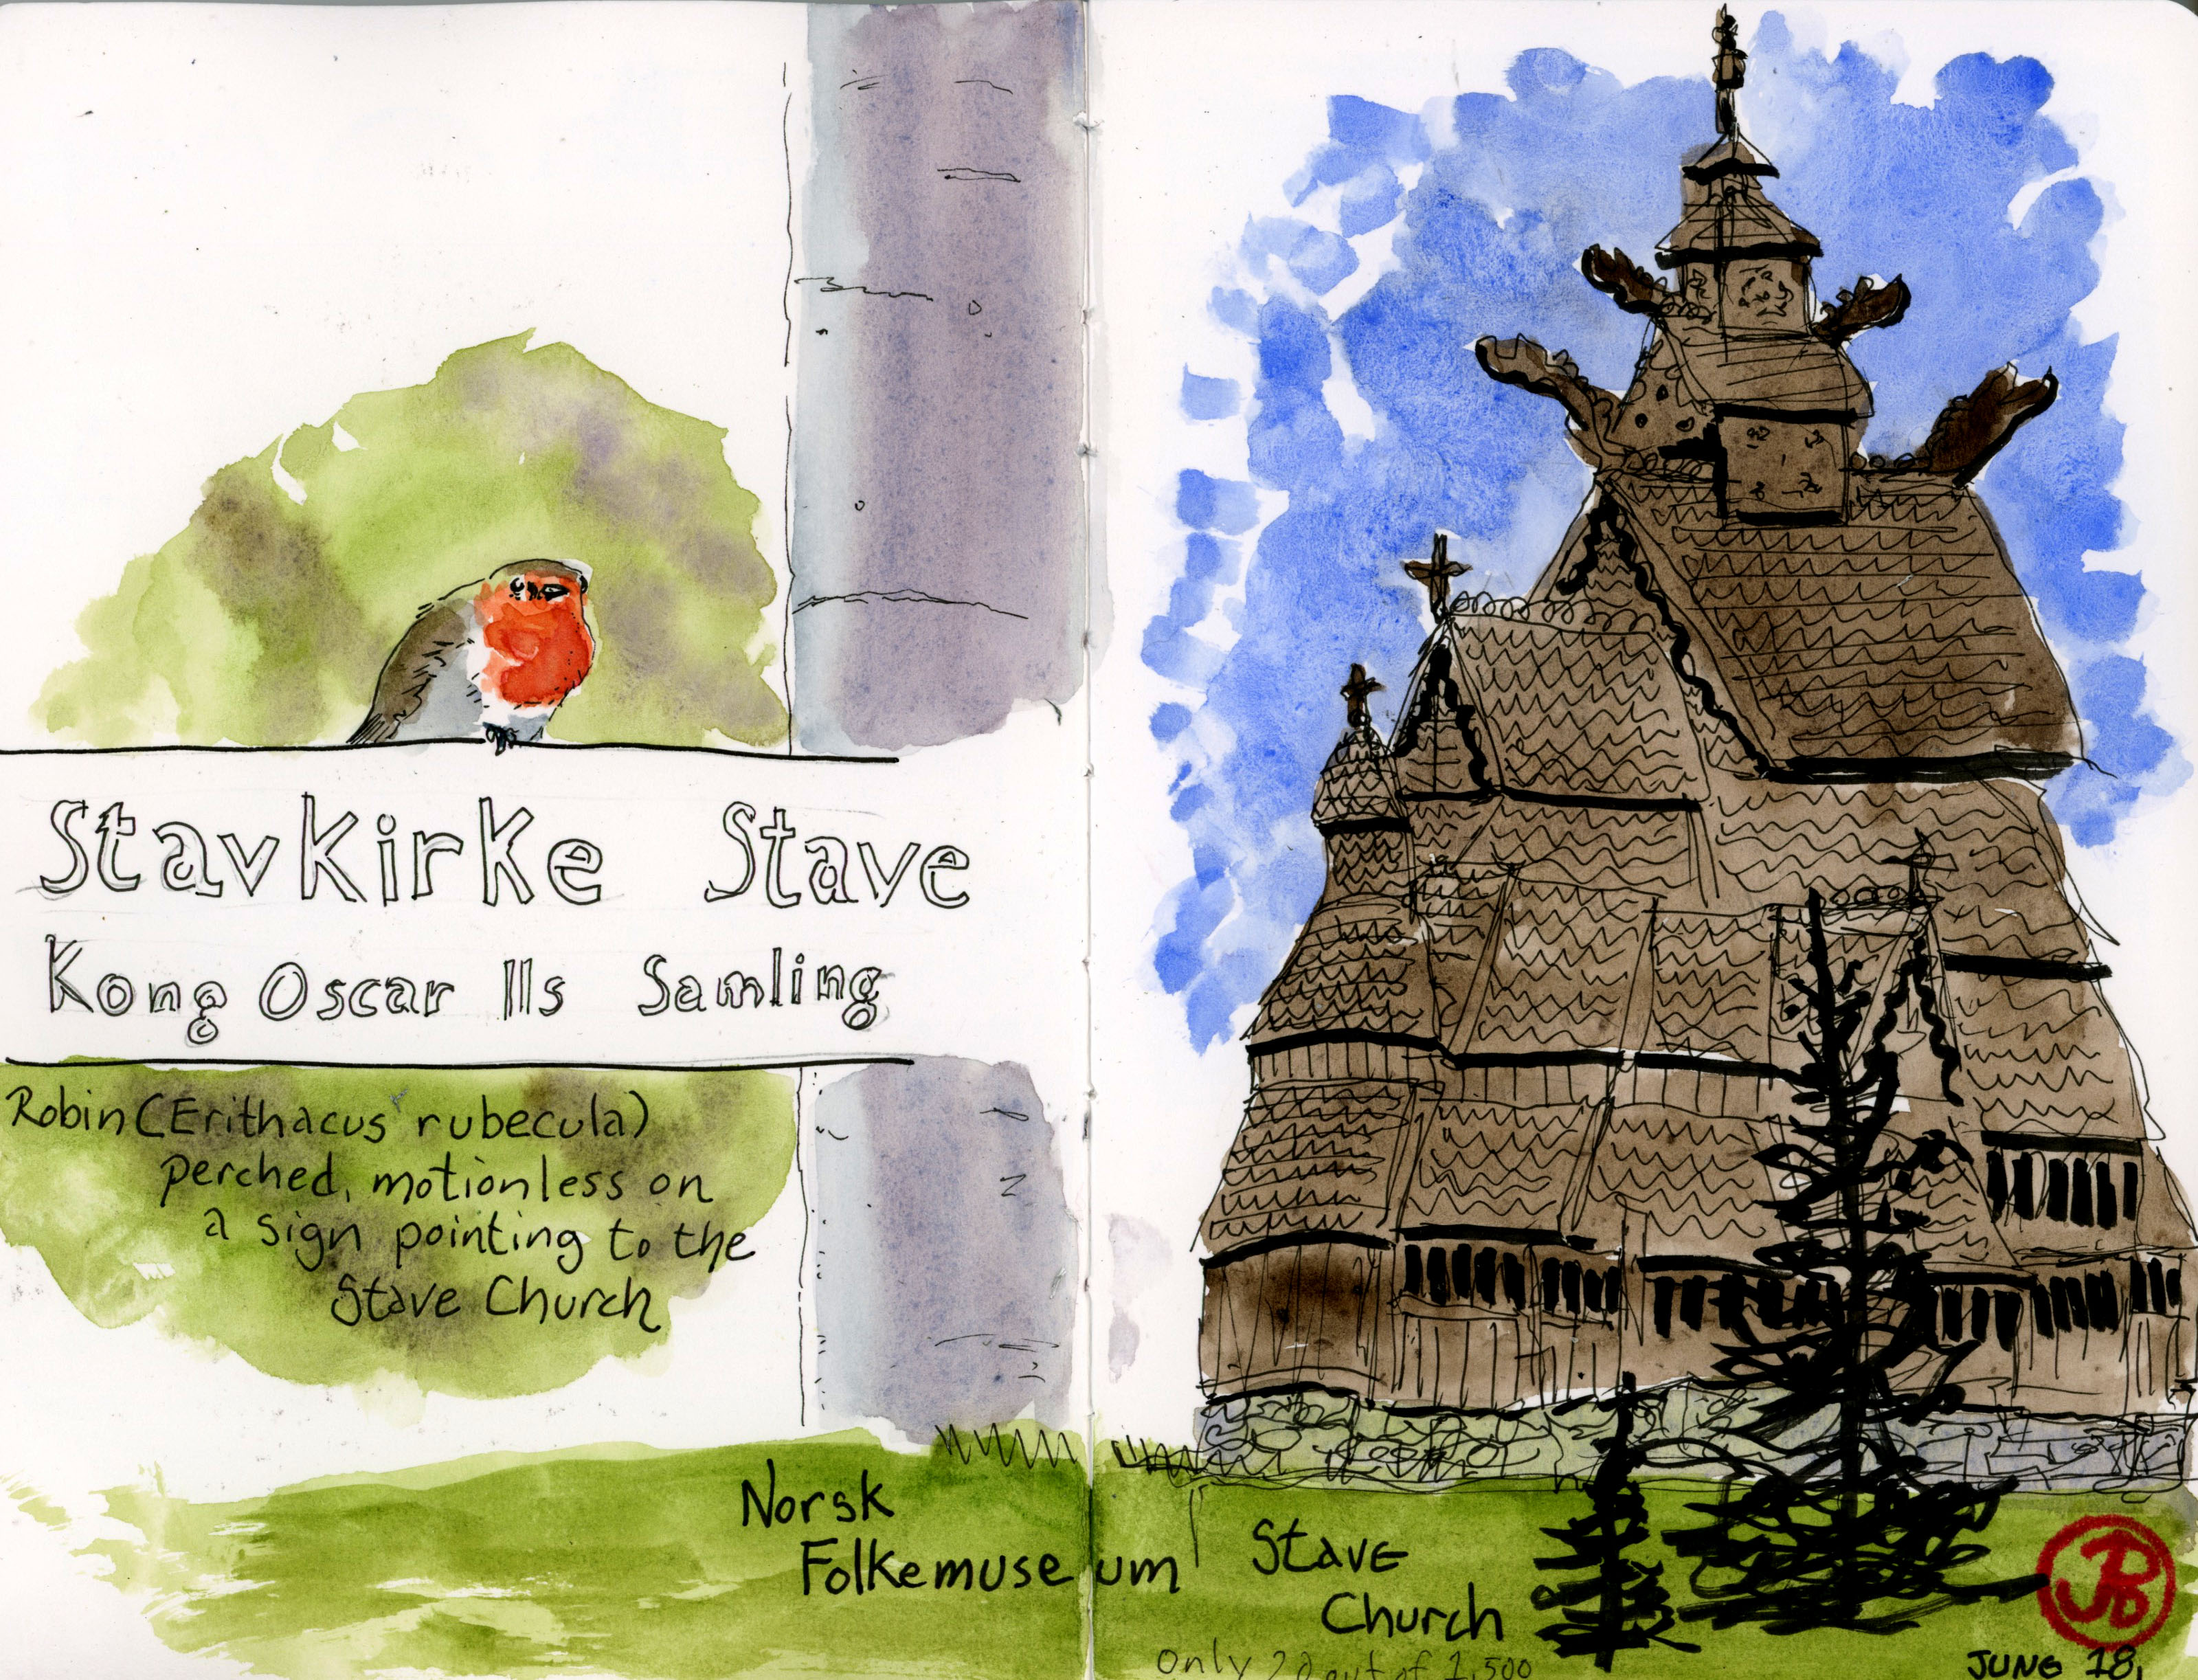 Stavkirke Stave
Kong Oscar IIs Samling
Robin (Erithacus rubecula)
perched, motionless on
a sign pointing to the
Stave Church
Norsk
Folkemuseum
Stave
Church
only 20 out of 1,500
JPB
JUNG 18